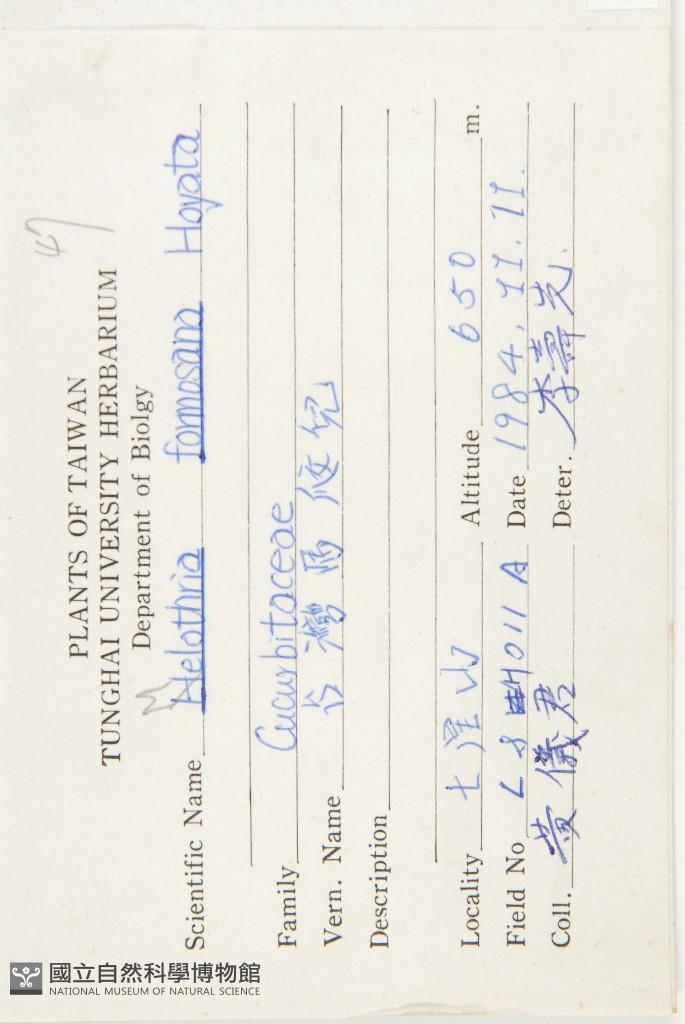 47
PLANTS OF TAIWAN
TUNGHAI UNIVERSITY HERBARIUM
Department of Biolgy
M
Scientific Name Helothria formosana Hoyata
Family Cucurbitaceae
Vern. Name 台灣馬㼎兒
Description
Locality 七星山 Altitude 650 m.
Field No L8 H011A Date 1984.11.11.
Coll. 黄儀君 Deter. 李壽先.
國立自然科學博物館
NATIONAL MUSEUM OF NATURAL SCIENCE